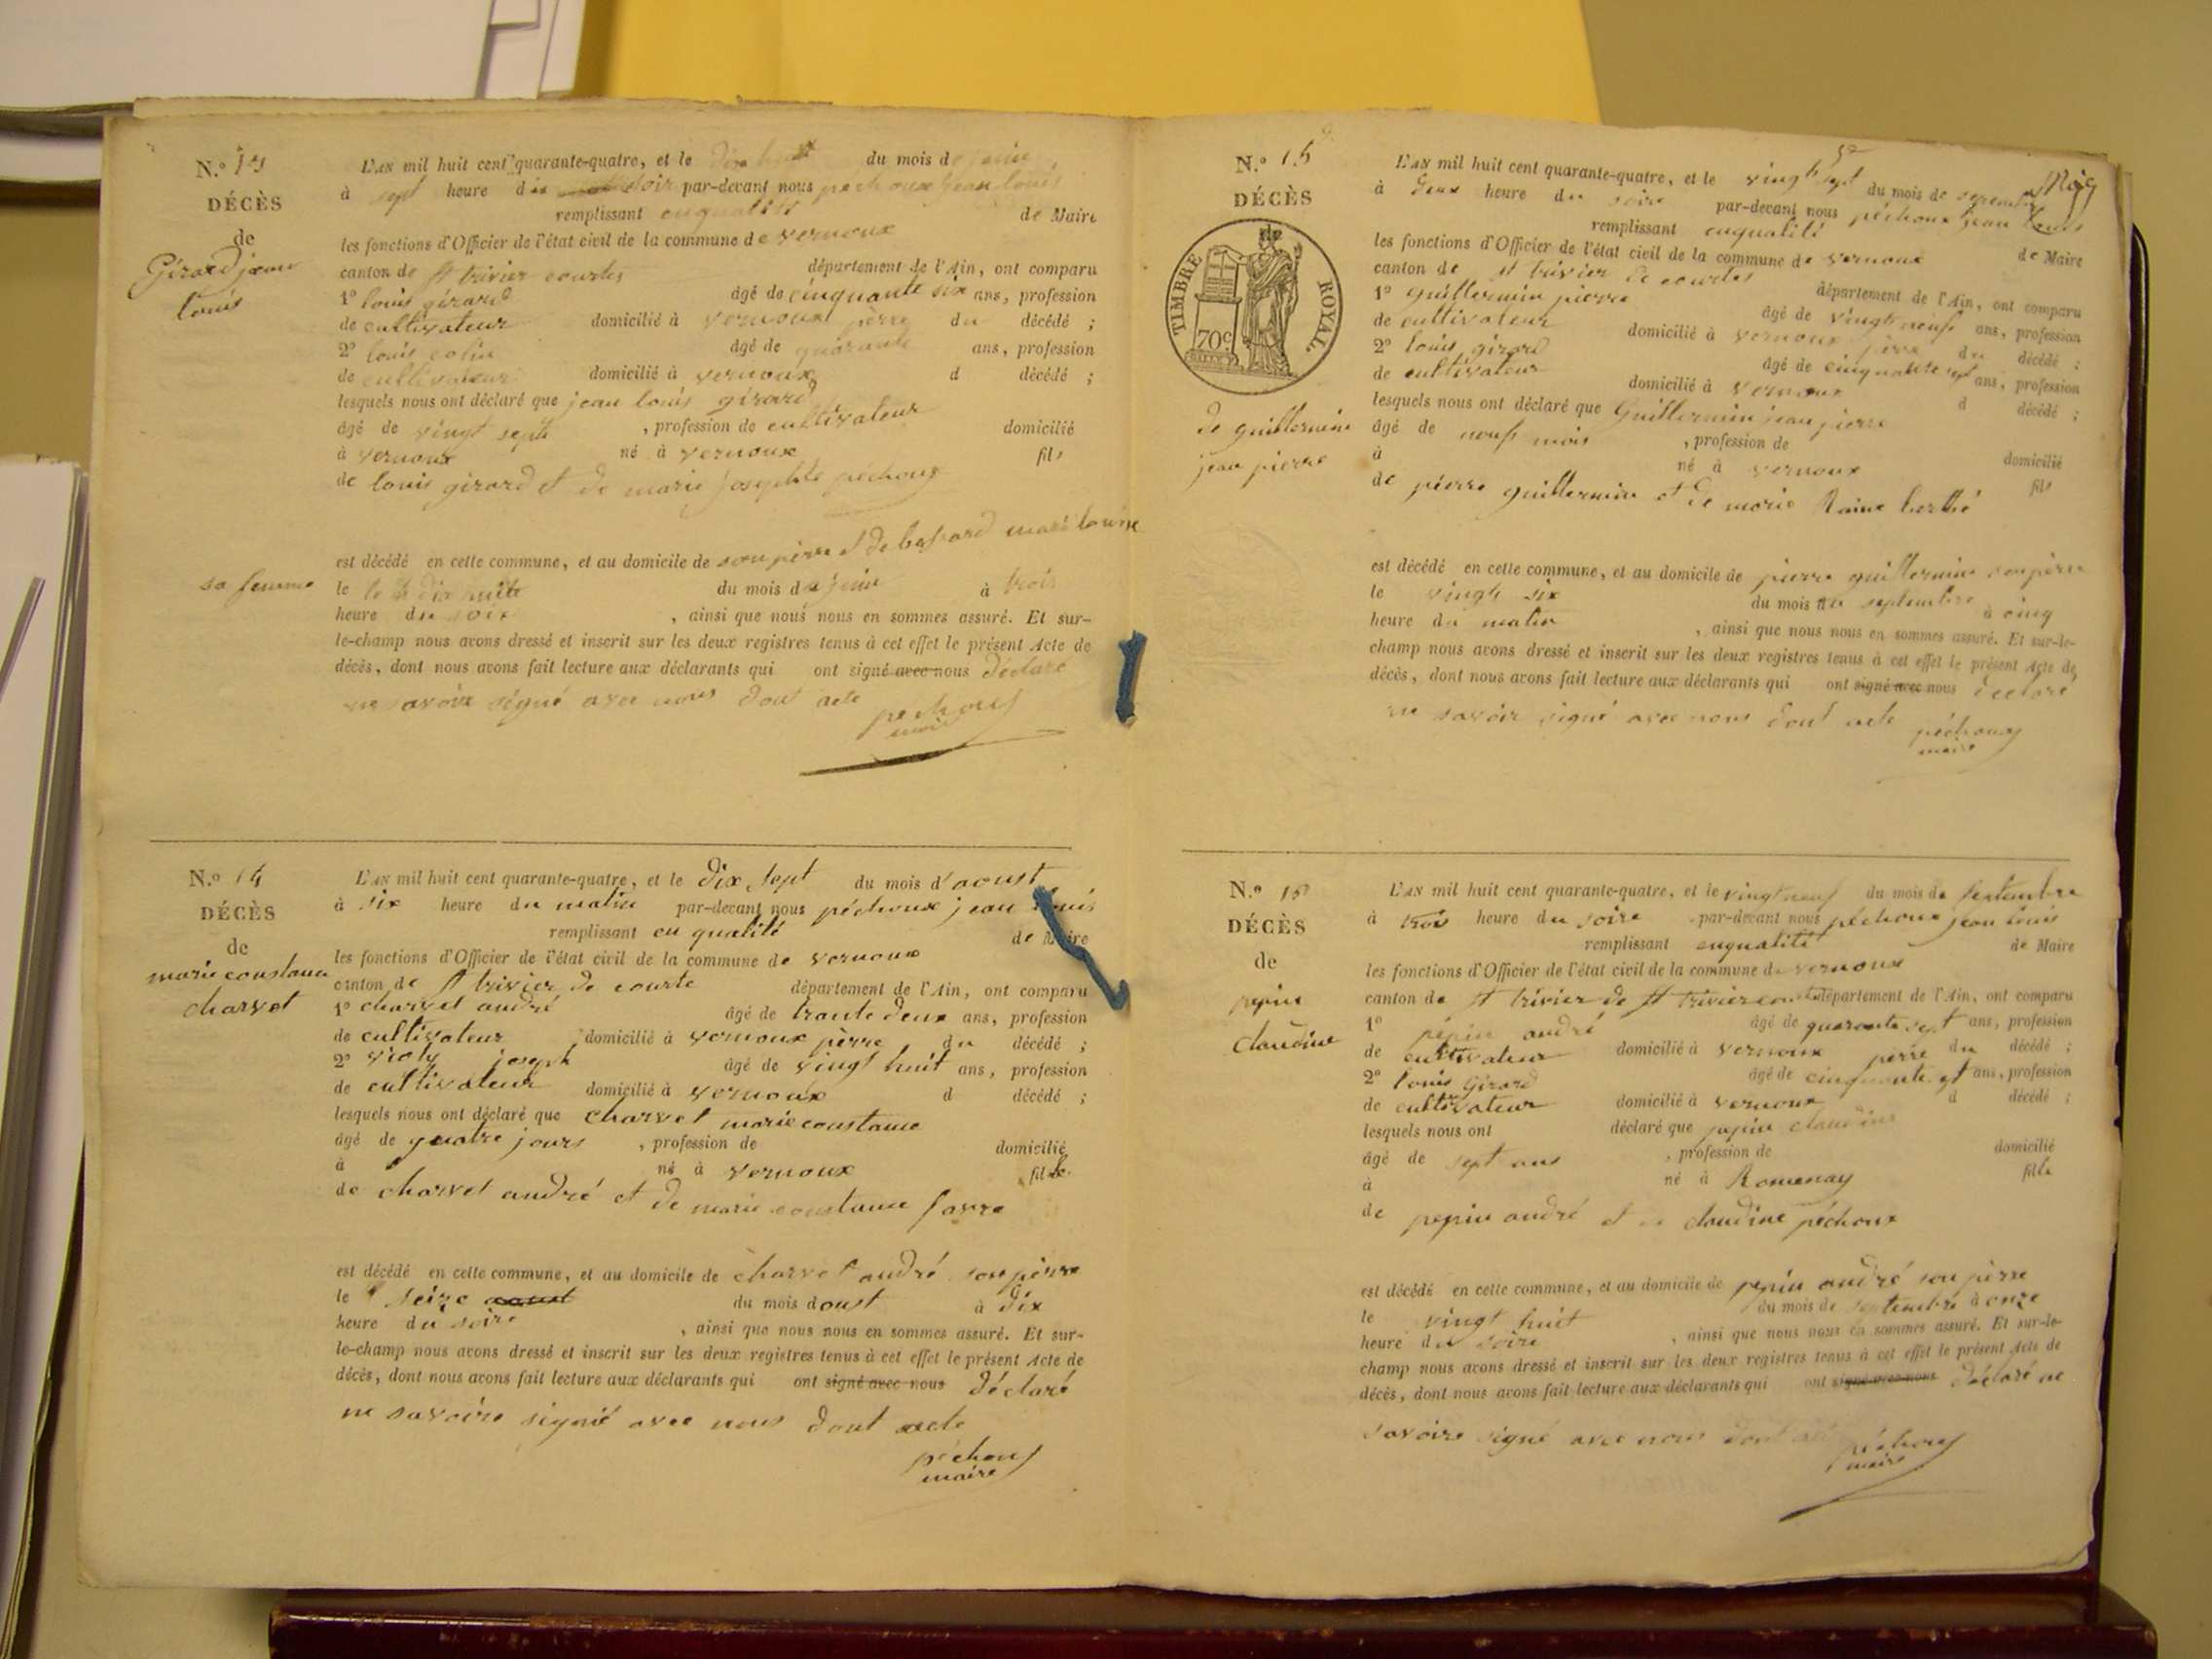 N.º 13
DÉCÈS
de
Girard jean
louis
sa femme
L'AN mil huit cent quarante-quatre, et le dix huit du mois de juin
à sept heure du soir par-devant nous pechoux jean louis
remplissant enqualité de Maire
les fonctions d'Officier de l'état civil de la commune de vernoux
canton de st trivier courtes département de l'Ain, ont comparu
1º louis girard âgé de cinquante six ans, profession
de cultivateur domicilié à vernoux pèrre du décédé ;
2º louis colin âgé de quarante ans, profession
de cultivateur domicilié à vernoux d décédé ;
lesquels nous ont déclaré que jean louis girard
âgé de vingt sept , profession de cultivateur domicilié
à vernoux né à vernoux fils
de louis girard et de marie josephte péchoux
est décédé en cette commune, et au domicile de son pèrre et de marie louise
le dix huit du mois de juin à trois
heure du soir , ainsi que nous nous en sommes assuré. Et sur-
le-champ nous avons dressé et inscrit sur les deux registres tenus à cet effet le présent Acte de
décès, dont nous avons fait lecture aux déclarants qui ont signé avec nous déclaré
ne savoir signé avec nous dont acte
pechoux
maire
N.º 14
DÉCÈS
de
marie constance
charvet
L'AN mil huit cent quarante-quatre, et le dix sept du mois d'aoust
à six heure du matin par-devant nous péchoux jean louis
remplissant en qualité de Maire
les fonctions d'Officier de l'état civil de la commune de vernoux
canton de st trivier de courte département de l'Ain, ont comparu
1º charvet andré âgé de trante deux ans, profession
de cultivateur domicilié à vernoux pèrre du décédé ;
2º joseph âgé de vingt huit ans, profession
de cultivateur domicilié à vernoux d décédé ;
lesquels nous ont déclaré que charvet marie constance
âgé de quatre jours , profession de domicilié
à né à vernoux fille
de charvet andré et de marie constance favre
est décédé en cette commune, et au domicile de charvet andré son pèrre
le seize aoust du mois doust à dix
heure du soire , ainsi que nous nous en sommes assuré. Et sur-
le-champ nous avons dressé et inscrit sur les deux registres tenus à cet effet le présent Acte de
décès, dont nous avons fait lecture aux déclarants qui ont signé avec nous déclaré
ne savoire signé avec nous dont acte
péchoux
maire
N.º 15
DÉCÈS
de
TIMBRE ROYAL.
70c
de guillermin
jean pierre
L'AN mil huit cent quarante-quatre, et le vingt sept du mois de septembre
à deux heure du soire par-devant nous péchoux jean louis
remplissant enqualité de Maire
les fonctions d'Officier de l'état civil de la commune de vernoux
canton de st trivier de courtes département de l'Ain, ont comparu
1º guillermin pierre âgé de vingt neuf ans, profession
de cultivateur domicilié à vernoux pèrre du décédé ;
2º louis girard âgé de cinquante sept ans, profession
de cultivateur domicilié à vernoux d décédé ;
lesquels nous ont déclaré que Guillermin jean pierre
âgé de neuf mois , profession de domicilié
à né à vernoux fils
de pierre guillermin et de marie Raine berthé
est décédé en cette commune, et au domicile de pierre guillermin son pèrre
le vingt six du mois de septembre à cinq
heure du matin , ainsi que nous nous en sommes assuré. Et sur-le-
champ nous avons dressé et inscrit sur les deux registres tenus à cet effet le présent Acte de
décès, dont nous avons fait lecture aux déclarants qui ont signé avec nous déclaré
ne savoir signé avec nous dont acte
péchoux
maire
N.º 15
DÉCÈS
de
pepin
claudine
L'AN mil huit cent quarante-quatre, et le vingt neuf du mois de septembre
à trois heure du soire par-devant nous péchoux jean louis
remplissant enqualité de Maire
les fonctions d'Officier de l'état civil de la commune de vernoux
canton de st trivier de st trivier département de l'Ain, ont comparu
1º pépin andré âgé de quarante sept ans, profession
de cultivateur domicilié à vernoux perre du décédé ;
2º louis Girard âgé de cinquante sept ans, profession
de cultivateur domicilié à vernoux d décédé ;
lesquels nous ont déclaré que pepin claudine
âgé de sept ans , profession de domicilié
à né à Romenay fille
de pepin andré et de claudine péchoux
est décédé en cette commune, et au domicile de pepin andré son pèrre
le vingt huit du mois de septembre à onze
heure du soire , ainsi que nous nous en sommes assuré. Et sur-le-
champ nous avons dressé et inscrit sur les deux registres tenus à cet effet le présent Acte de
décès, dont nous avons fait lecture aux déclarants qui ont signé avec nous déclaré ne
savoire signé avec nous dont acte
péchoux
maire